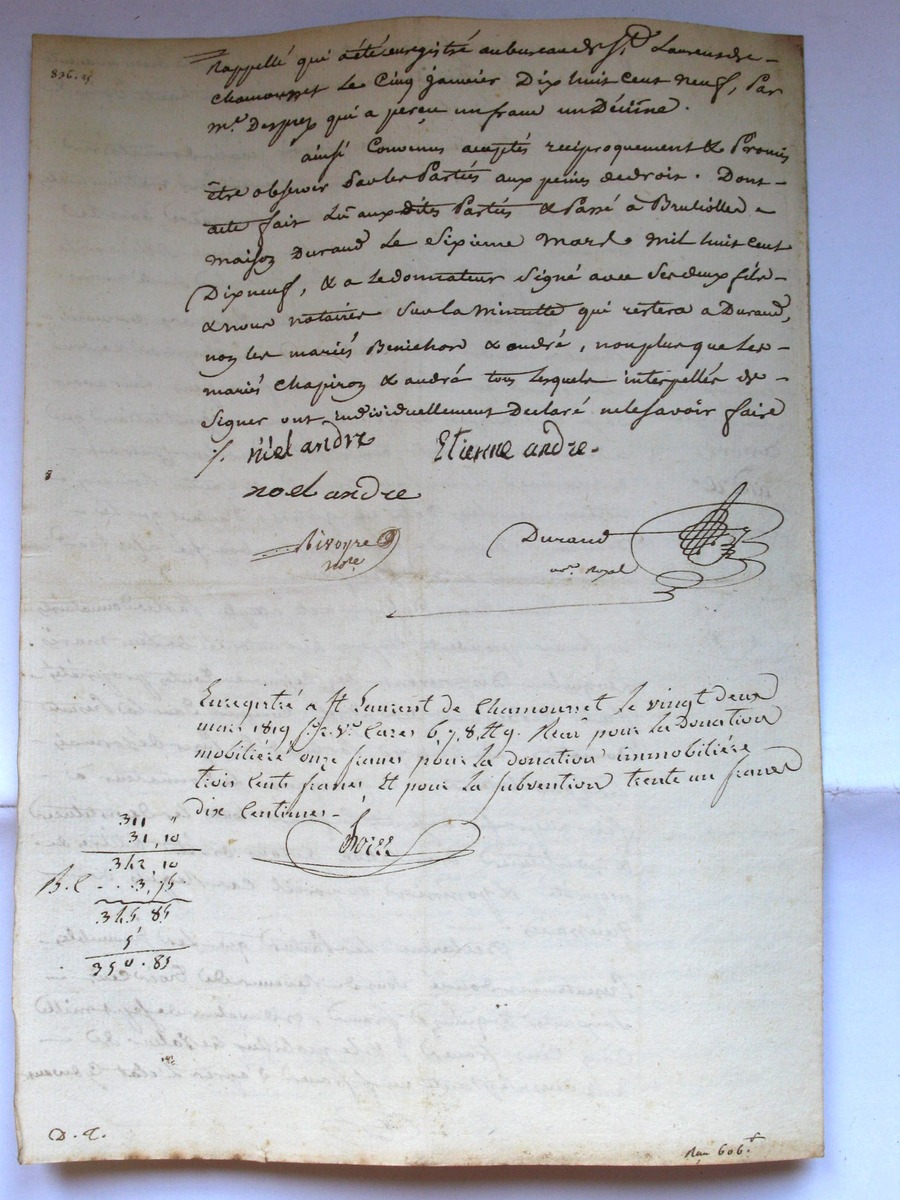 Rappellé qui a été enregistré au bureau de St. Laurens de
chamousset le Cinq janvier Dix huit cent neuf, Par
Mr. Desprez qui a perçu un franc un Décime.
ainsi Convenus acceptés reciproquement & Promis
être observer Par les Partiés aux peines de droit. Dont
acte fait Lû aux dites Partiés & Passé à Brullolles
maison Durand Le Sixieme Mars Mil huit cent
Dixneuf, & a Le donnateur Signé avec Ses deux fils
& nous notaires Sur la Minutte qui restera a Durand,
non les mariés Benichon & andré, nonplus que Les
mariés Chapiron & andré tous Lesquels interpellés de
Signer ont individuellement Declaré ne le Savoir faire
niel andre Etienne andre.
noel andre
Rivoyre Durand
nore. nore. Royal
Enregistré a St Laurent de Chamousset le vingt deux
mars 1819 f. Vo. Cases 6, 7, 8, et 9. Reçu pour la Donation
mobilière onze francs pour la donation immobilière
trois cents francs et pour la subvention trente un francs
dix Centimes.
311 "
31,10
342 10
B.C - . . 3,75
345 85
5
350.85
D. T.